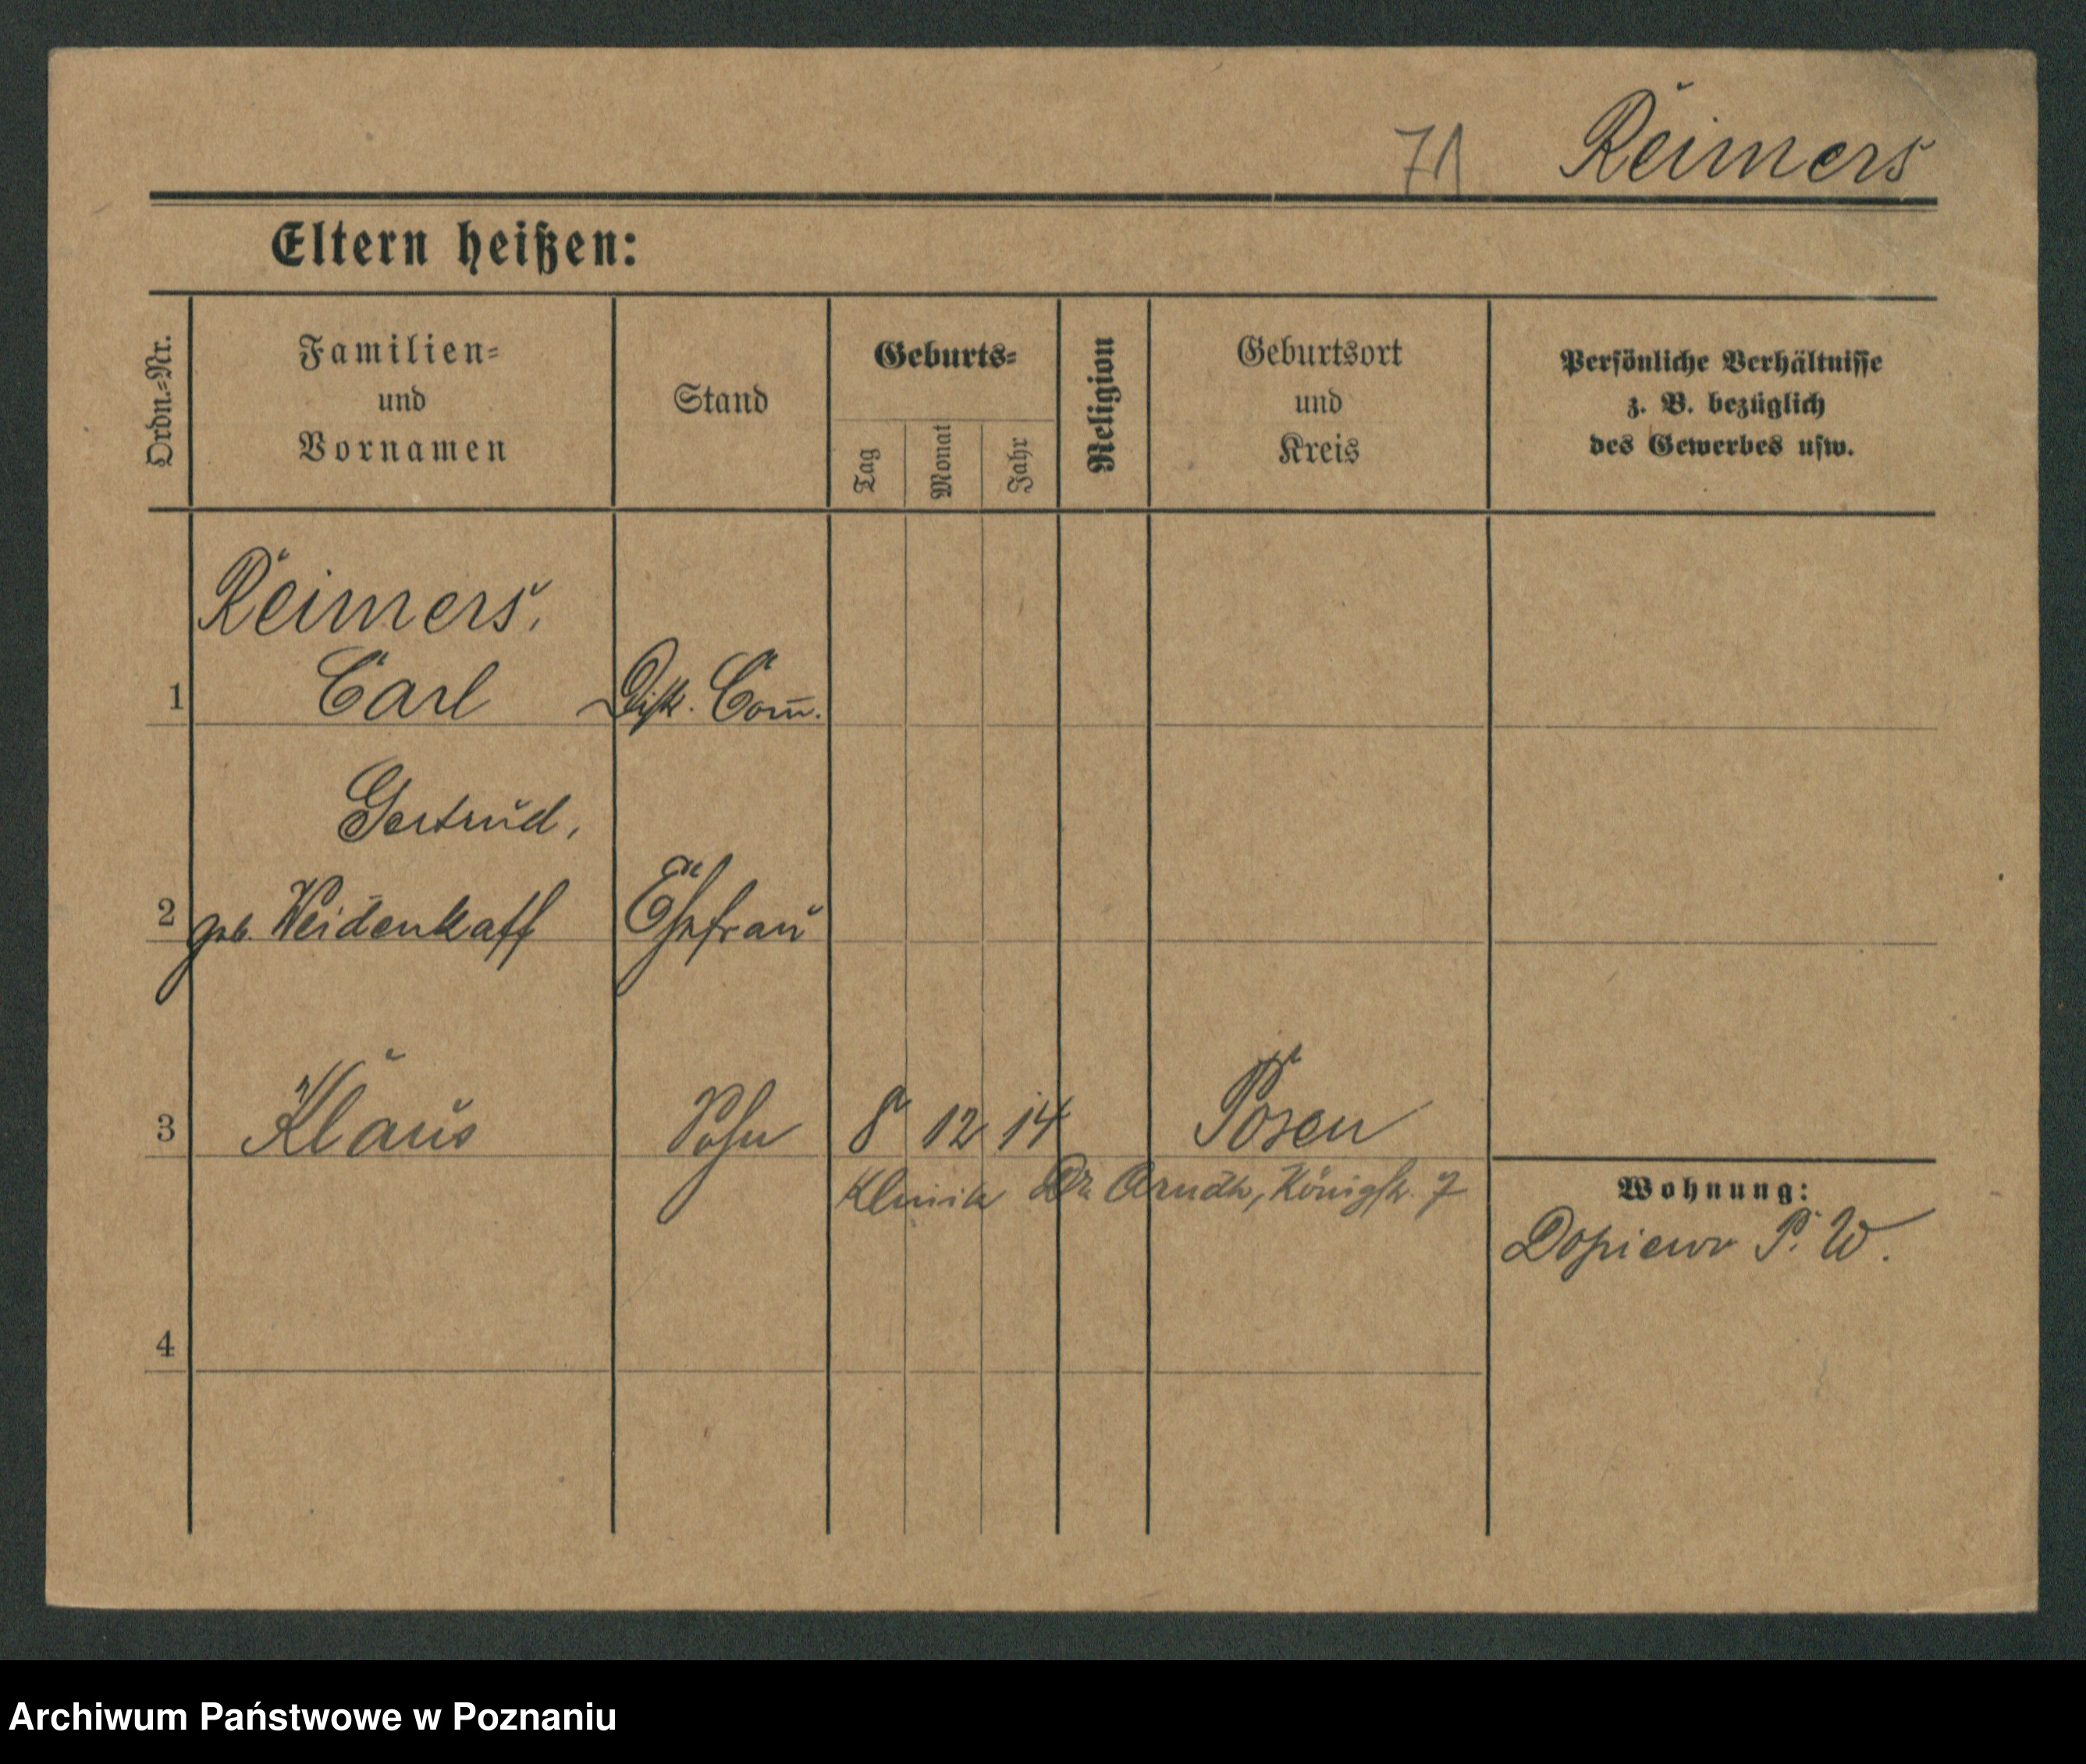 71 Reimers
Eltern heißen:
Ordn.=Nr.
Familien=
und
Vornamen
Stand
Geburts=
Tag
Monat
Jahr
Religion
Geburtsort
und
Kreis
Persönliche Verhältnisse
z. B. bezüglich
des Gewerbes usw.
Reimers,
1 Carl Distr. Com̅.
Gertrud,
2 geb. Weidenkaff Ehefrau
3 Klaus Sohn 8 12 14 Posen
Klinik Dr. Arndt, Königstr. 7
Wohnung:
Dopiewo P. W.
4
Archiwum Państwowe w Poznaniu